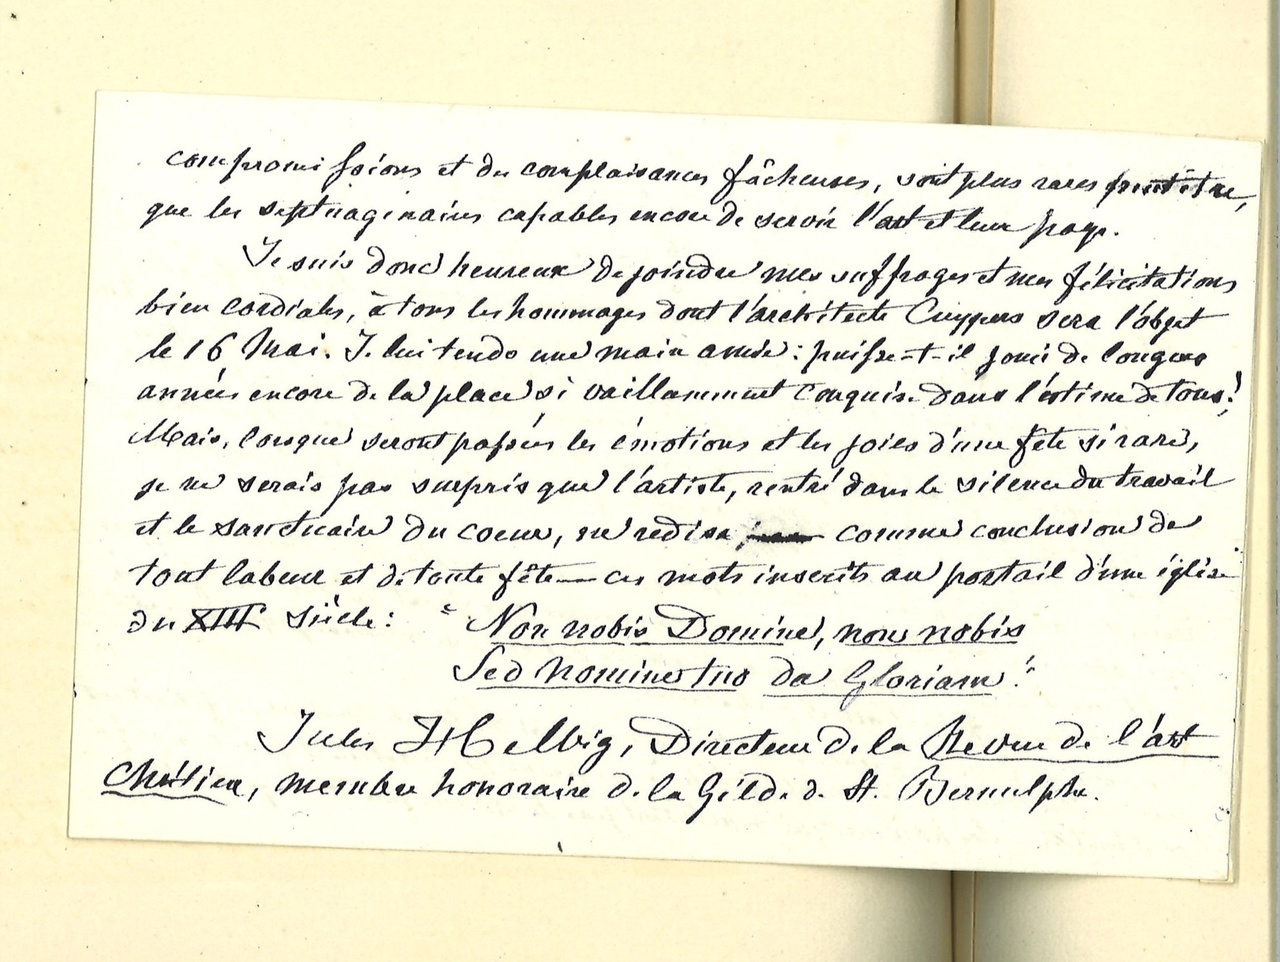 compromissions et des complaisances fâcheuses, sont plus rares peut être,
que les septuaginaires capables encore de servir l'art et leur pays.
Je suis donc heureux de joindre mes suffrages et mes félicitations
bien cordiales, à tous les hommages dont l'architecte Cuypers sera l'objet
le 16 Mai. Je lui tends une main amie : puisse-t-il jouir de longues
années encore de la place si vaillamment conquise dans l'estime de tous!
Mais, lorsque seront passées les émotions et les joies d'une fête si rare,
je ne serais pas surpris que l'artiste, rentré dans le silence du travail
et le sanctuaire du coeur, ne redise comme conclusion de
tout labeur et de toute fête — ces mots inscrits au portail d'une église
du XIIIe siècle : "Non nobis Domine, non nobis
Sed nomine tuo da Gloriam!"
Jules Helbig, Directeur de la Revue de l'art
Chrétien, membre honoraire de la Gilde de St. Bernulphe.